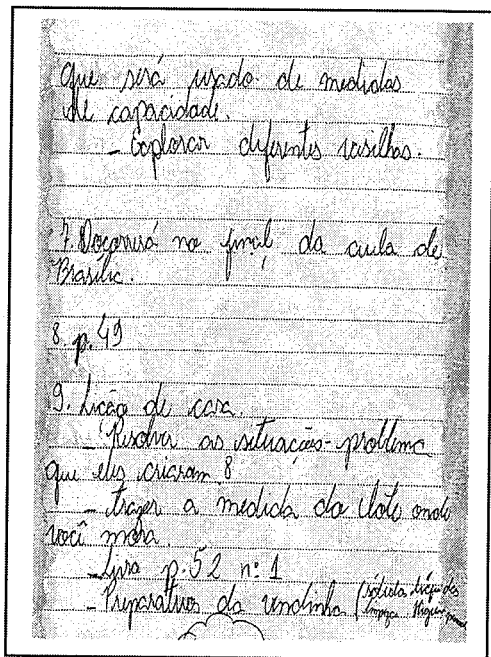 que será usado de medidas
de capacidade.
- Explorar diferentes vasilhas.
7. Ocorrerá no final da aula de
Brasília.
8. p. 49
9. Lição de casa.
- Resolver as situações-problema
que eles criaram 8
- trazer a medida do lote onde
você mora
- Livro p. 52 nº 1
- Preparativos da vendinha (sólidos, líquidos
limpeza higiene